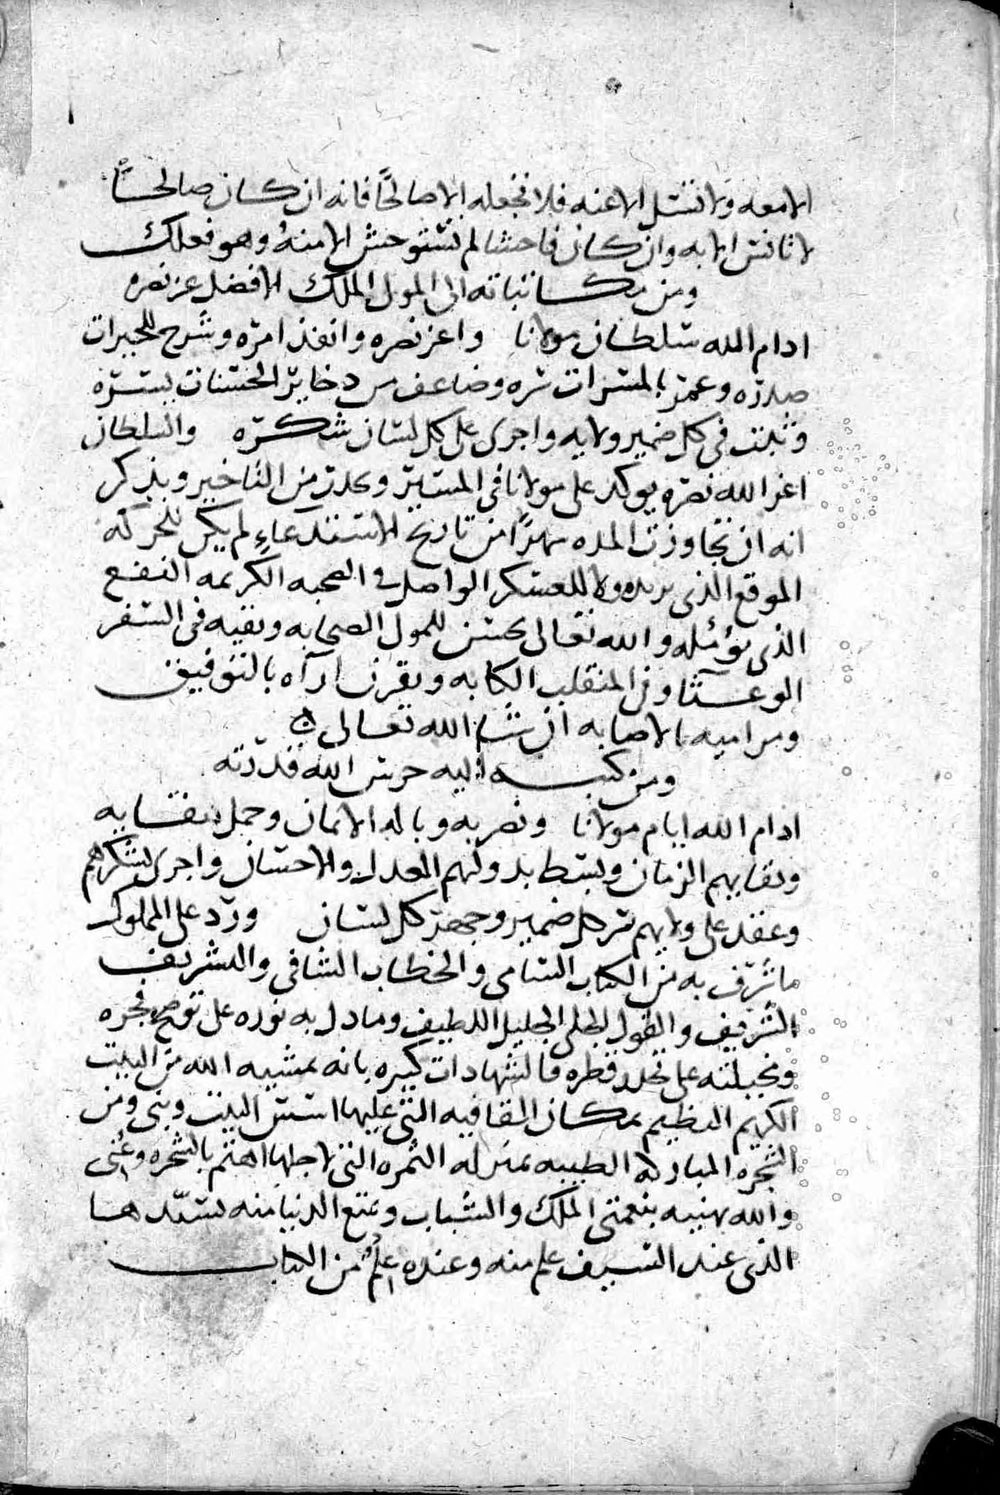 الا معه ولا تسل الا عنه فلا تجعله الا صالحًا فانه ان كان صالحًا
لا تانس الا به وان كان فاحشا لم تستوحش الا منه وهو فعلك
ومن مكاتباته الى المولى الملك الافضل عز نصره
ادام الله سلطان مولانا واعز نصره وانفذ امره وشرح للخيرات
صدره وعمر بالمسرات سره وضاعف من ذخاير الحسنات يسره
وثبت في كل ضمير ولايه واجرى على كل لسان شكره والسلطان
اعز الله نصره يوكد على مولانا في المسير ويحذر من التاخير ويذكر
انه ان تجاوزت المده شهرًا من تاريخ الاستدعاء لم يكن للحركه
الموقع الذي يريده ولا للعسكر الواصل في الصحبه الكريمه النفع
الذي يؤمله والله تعالى يحسن للمولى الصحابه ويقيه في السفر
الوعثا وفي المنقلب الكابه ويقرن اراه بالتوفيق
ومراميه بالاصابه ان شا الله تعالى
ومن كتبه اليه حرس الله قدرته
ادام الله ايام مولانا ونصر به وباله الايمان وجمل ببقايه
وبقايهم الزمان وبسط بدولتهم العدل والاحسان واجرى لشكرهم
وعقد على ولايهم سر كل ضمير وجهر كل لسان ورد على المملوك
ما شرف به من الكتاب السامي والخطاب الشافي والتشريف
الشريف والقول الجلي الجليل اللطيف وما دل به نوره على توضح فجره
ومخيلته على تحدر قطره فالشهادات كثيره بانه بمشيه الله من البيت
الكريم العظيم بمكان القافيه التي عليها اسس البيت وبني ومن
الشجره المباركه الطيبه بمنزله الثمره التي لاجلها اهتم بالشجره وعُني
والله يهنيه بنعمتي الملك والشباب ويمتع الدنيا منه بسيدها
الذي عند السيف علم منه وعنده علمٌ من الكتاب